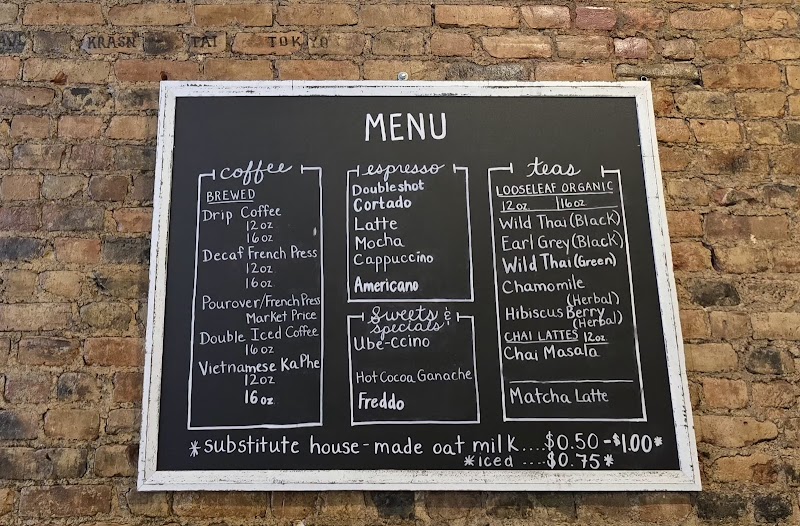 KRASN TAI TOKYO
MENU
coffee
BREWED
Drip Coffee
12oz
16oz
Decaf French Press
12oz
16oz
Pourover/French Press
Market Price
Double Iced Coffee
16oz
Vietnamese KaPhe
12oz
16oz
espresso
Doubleshot
Cortado
Latte
Mocha
Cappuccino
Americano
Sweets &
Specials
Ube-ccino
Hot Cocoa Ganache
Freddo
teas
LOOSELEAF ORGANIC
12oz 16oz
Wild Thai (Black)
Earl Grey (Black)
Wild Thai (Green)
Chamomile
(Herbal)
Hibiscus Berry
(Herbal)
CHAI LATTES 12oz
Chai Masala
Matcha Latte
*substitute house-made oat milk....$0.50-$1.00*
*iced ....$0.75*